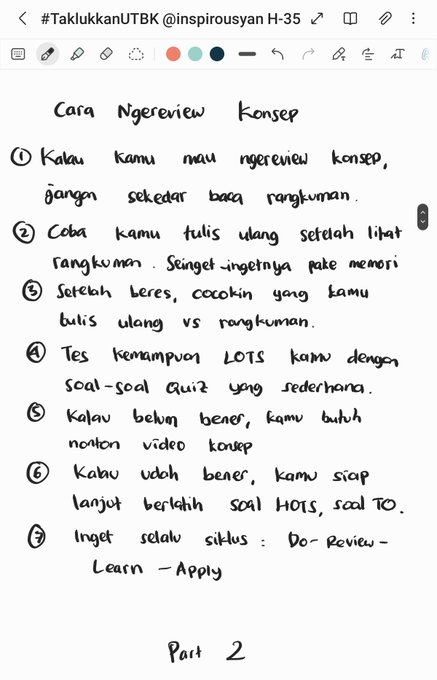 #TaklukkanUTBK @inspirousyan H-35
Cara Ngereview Konsep
① Kalau kamu mau ngereview konsep,
jangan sekedar baca rangkuman.
② Coba kamu tulis ulang setelah lihat
rangkuman. Seinget-ingetnya pake memori
③ Setelah beres, cocokin yang kamu
tulis ulang vs rangkuman.
④ Tes kemampuan LOTS kamu dengan
soal-soal Quiz yang sederhana.
⑤ Kalau belum bener, kamu butuh
nonton video konsep
⑥ Kalau udah bener, kamu siap
lanjut berlatih soal HOTS, soal TO.
⑦ Inget selalu siklus : Do-Review-
Learn-Apply
Part 2